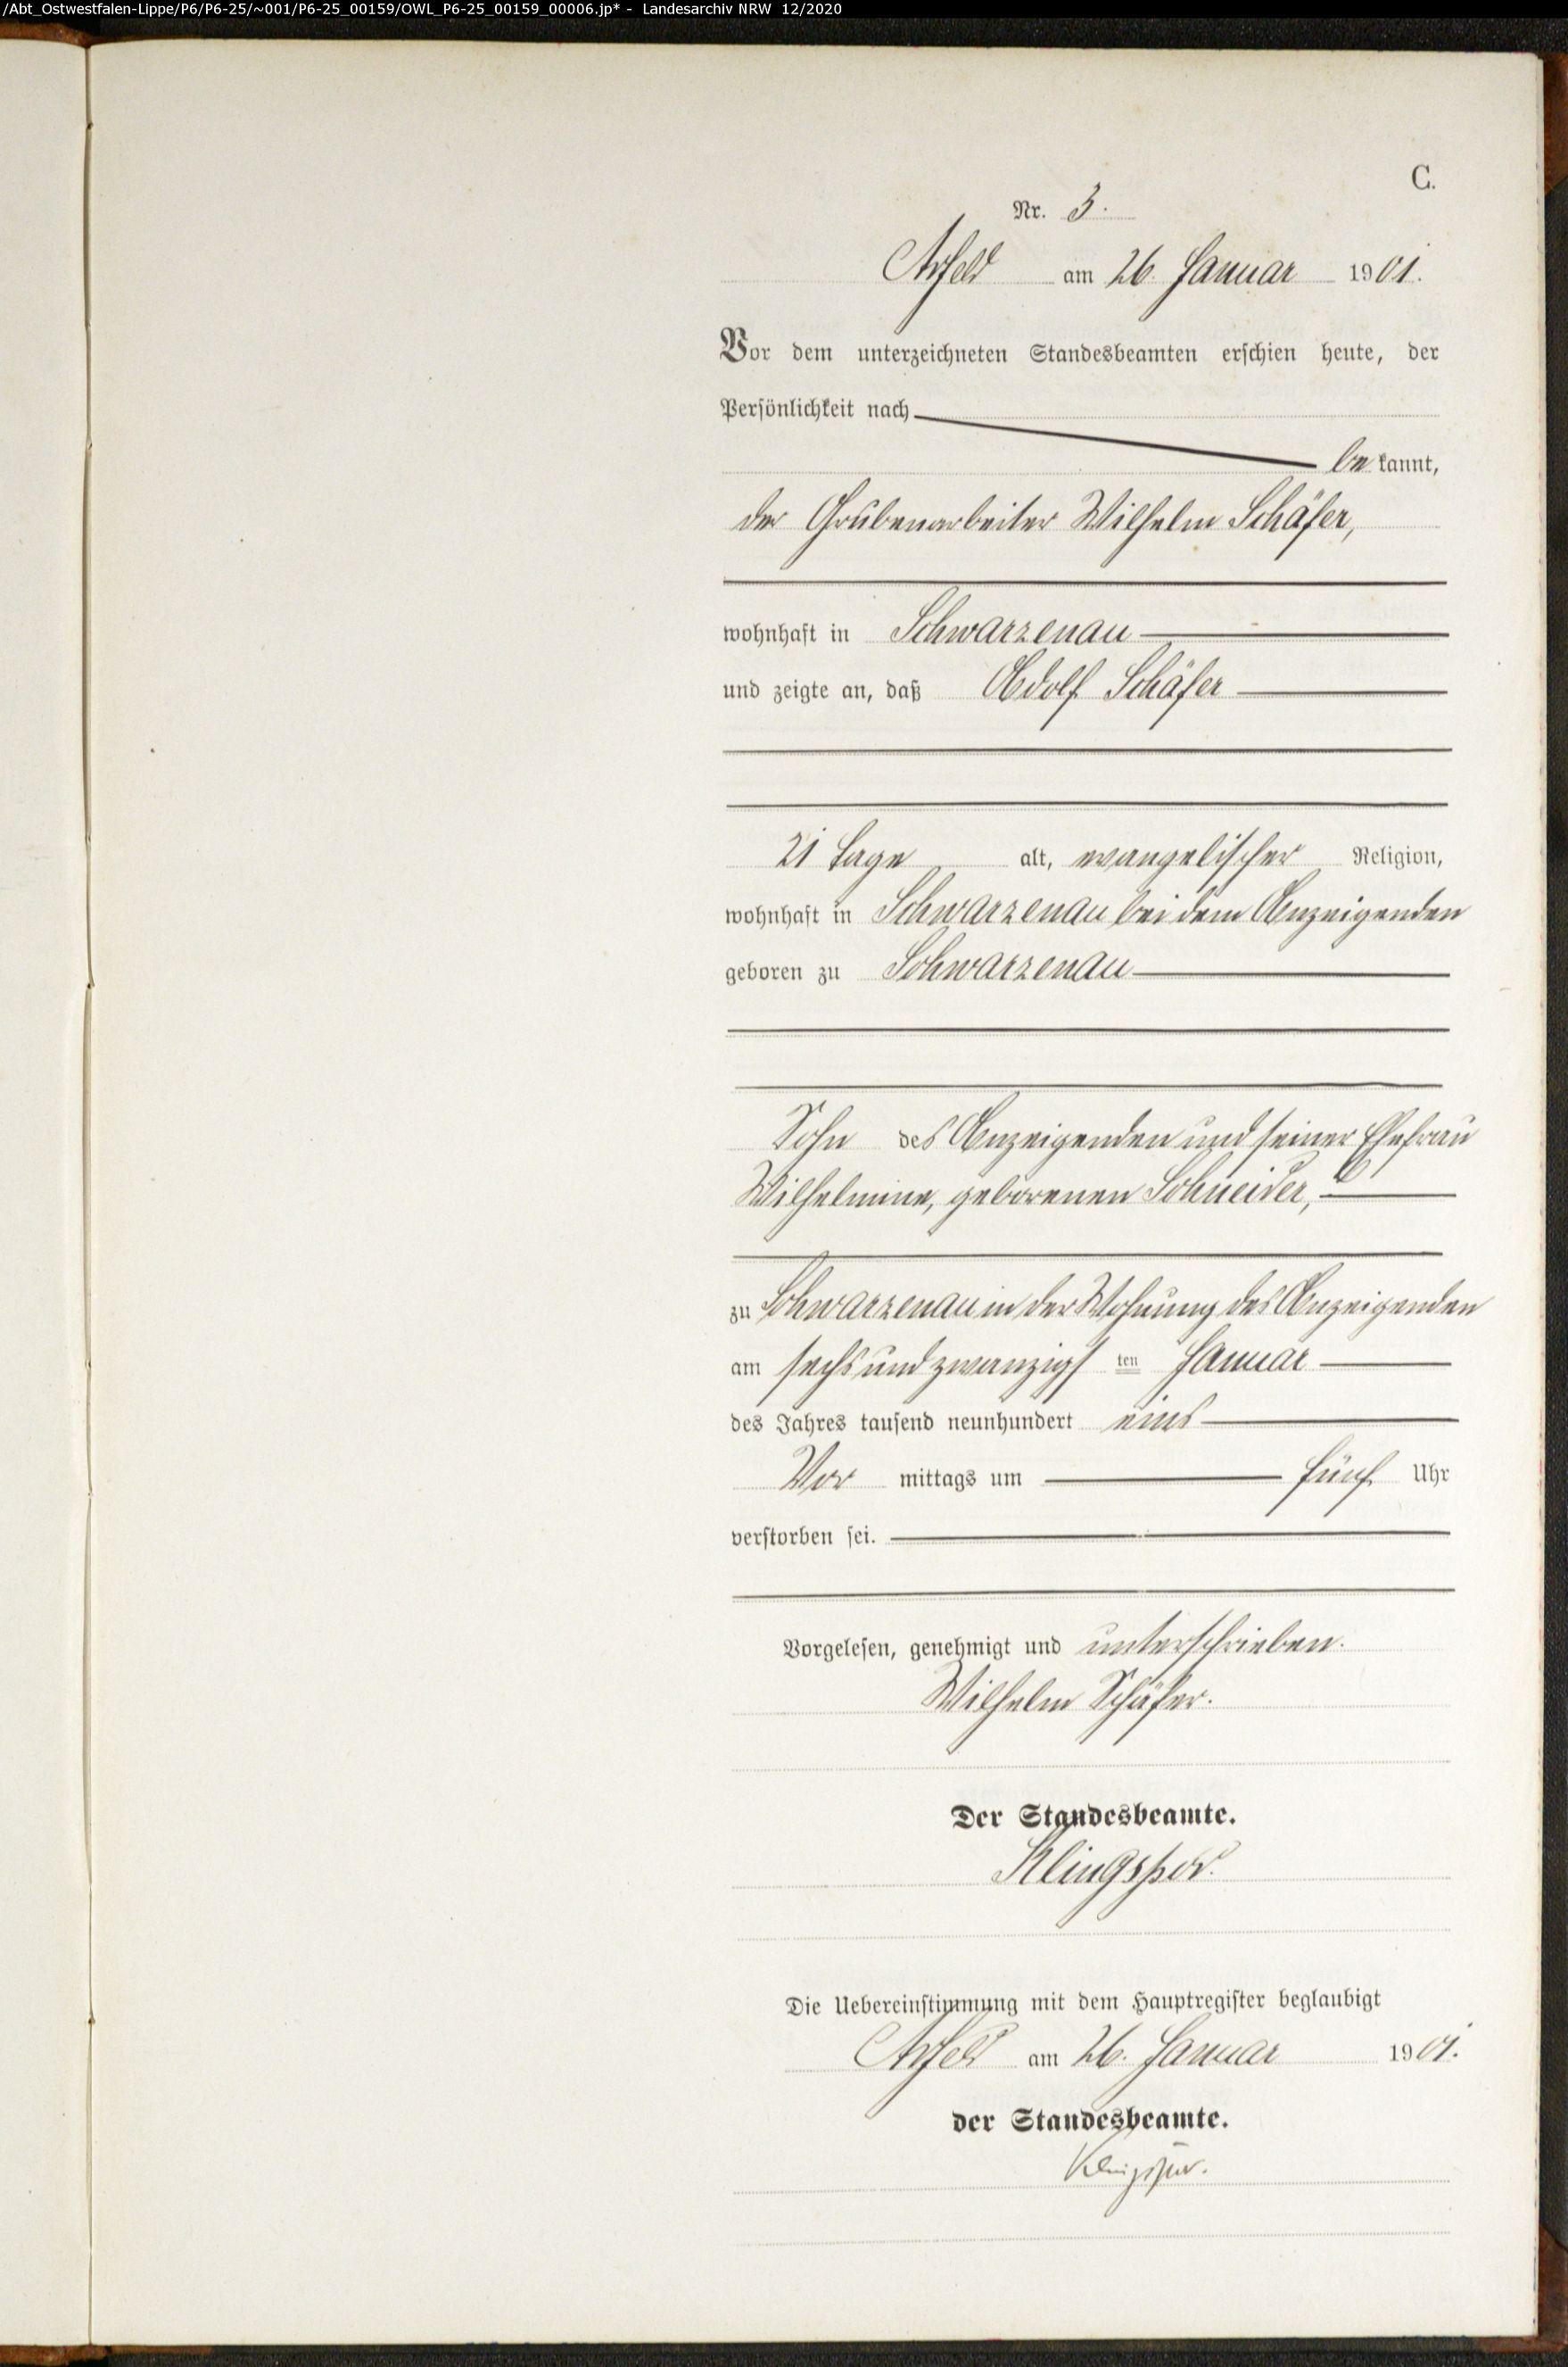 /Abt_Ostwestfalen-Lippe/P6/P6-25/~001/P6-25_00159/OWL_P6-25_00159_00006.jp* - Landesarchiv NRW 12/2020
C.
Nr. 3.
Arfeld am 26. Januar 1901.
Vor dem unterzeichneten Standesbeamten erschien heute, der
Persönlichkeit nach
be kannt,
der Grubenarbeiter Wilhelm Schäfer,
wohnhaft in Schwarzenau
und zeigte an, daß Adolf Schäfer
21 Tage alt, evangelischer Religion,
wohnhaft in Schwarzenau bei dem Anzeigenden
geboren zu Schwarzenau
Sohn des Anzeigenden und seiner Ehefrau
Wilhelmine, geborenen Schneider,
zu Schwarzenau in der Wohnung des Anzeigenden
am sechsundzwanzigsten Januar
des Jahres tausend neunhundert eins
Vor mittags um fünf Uhr
verstorben sei.
Vorgelesen, genehmigt und unterschrieben.
Wilhelm Schäfer.
Der Standesbeamte.
Klingspor.
Die Uebereinstimmung mit dem Hauptregister beglaubigt
Arfeld am 26. Januar 1901.
der Standesbeamte.
Klingspor.